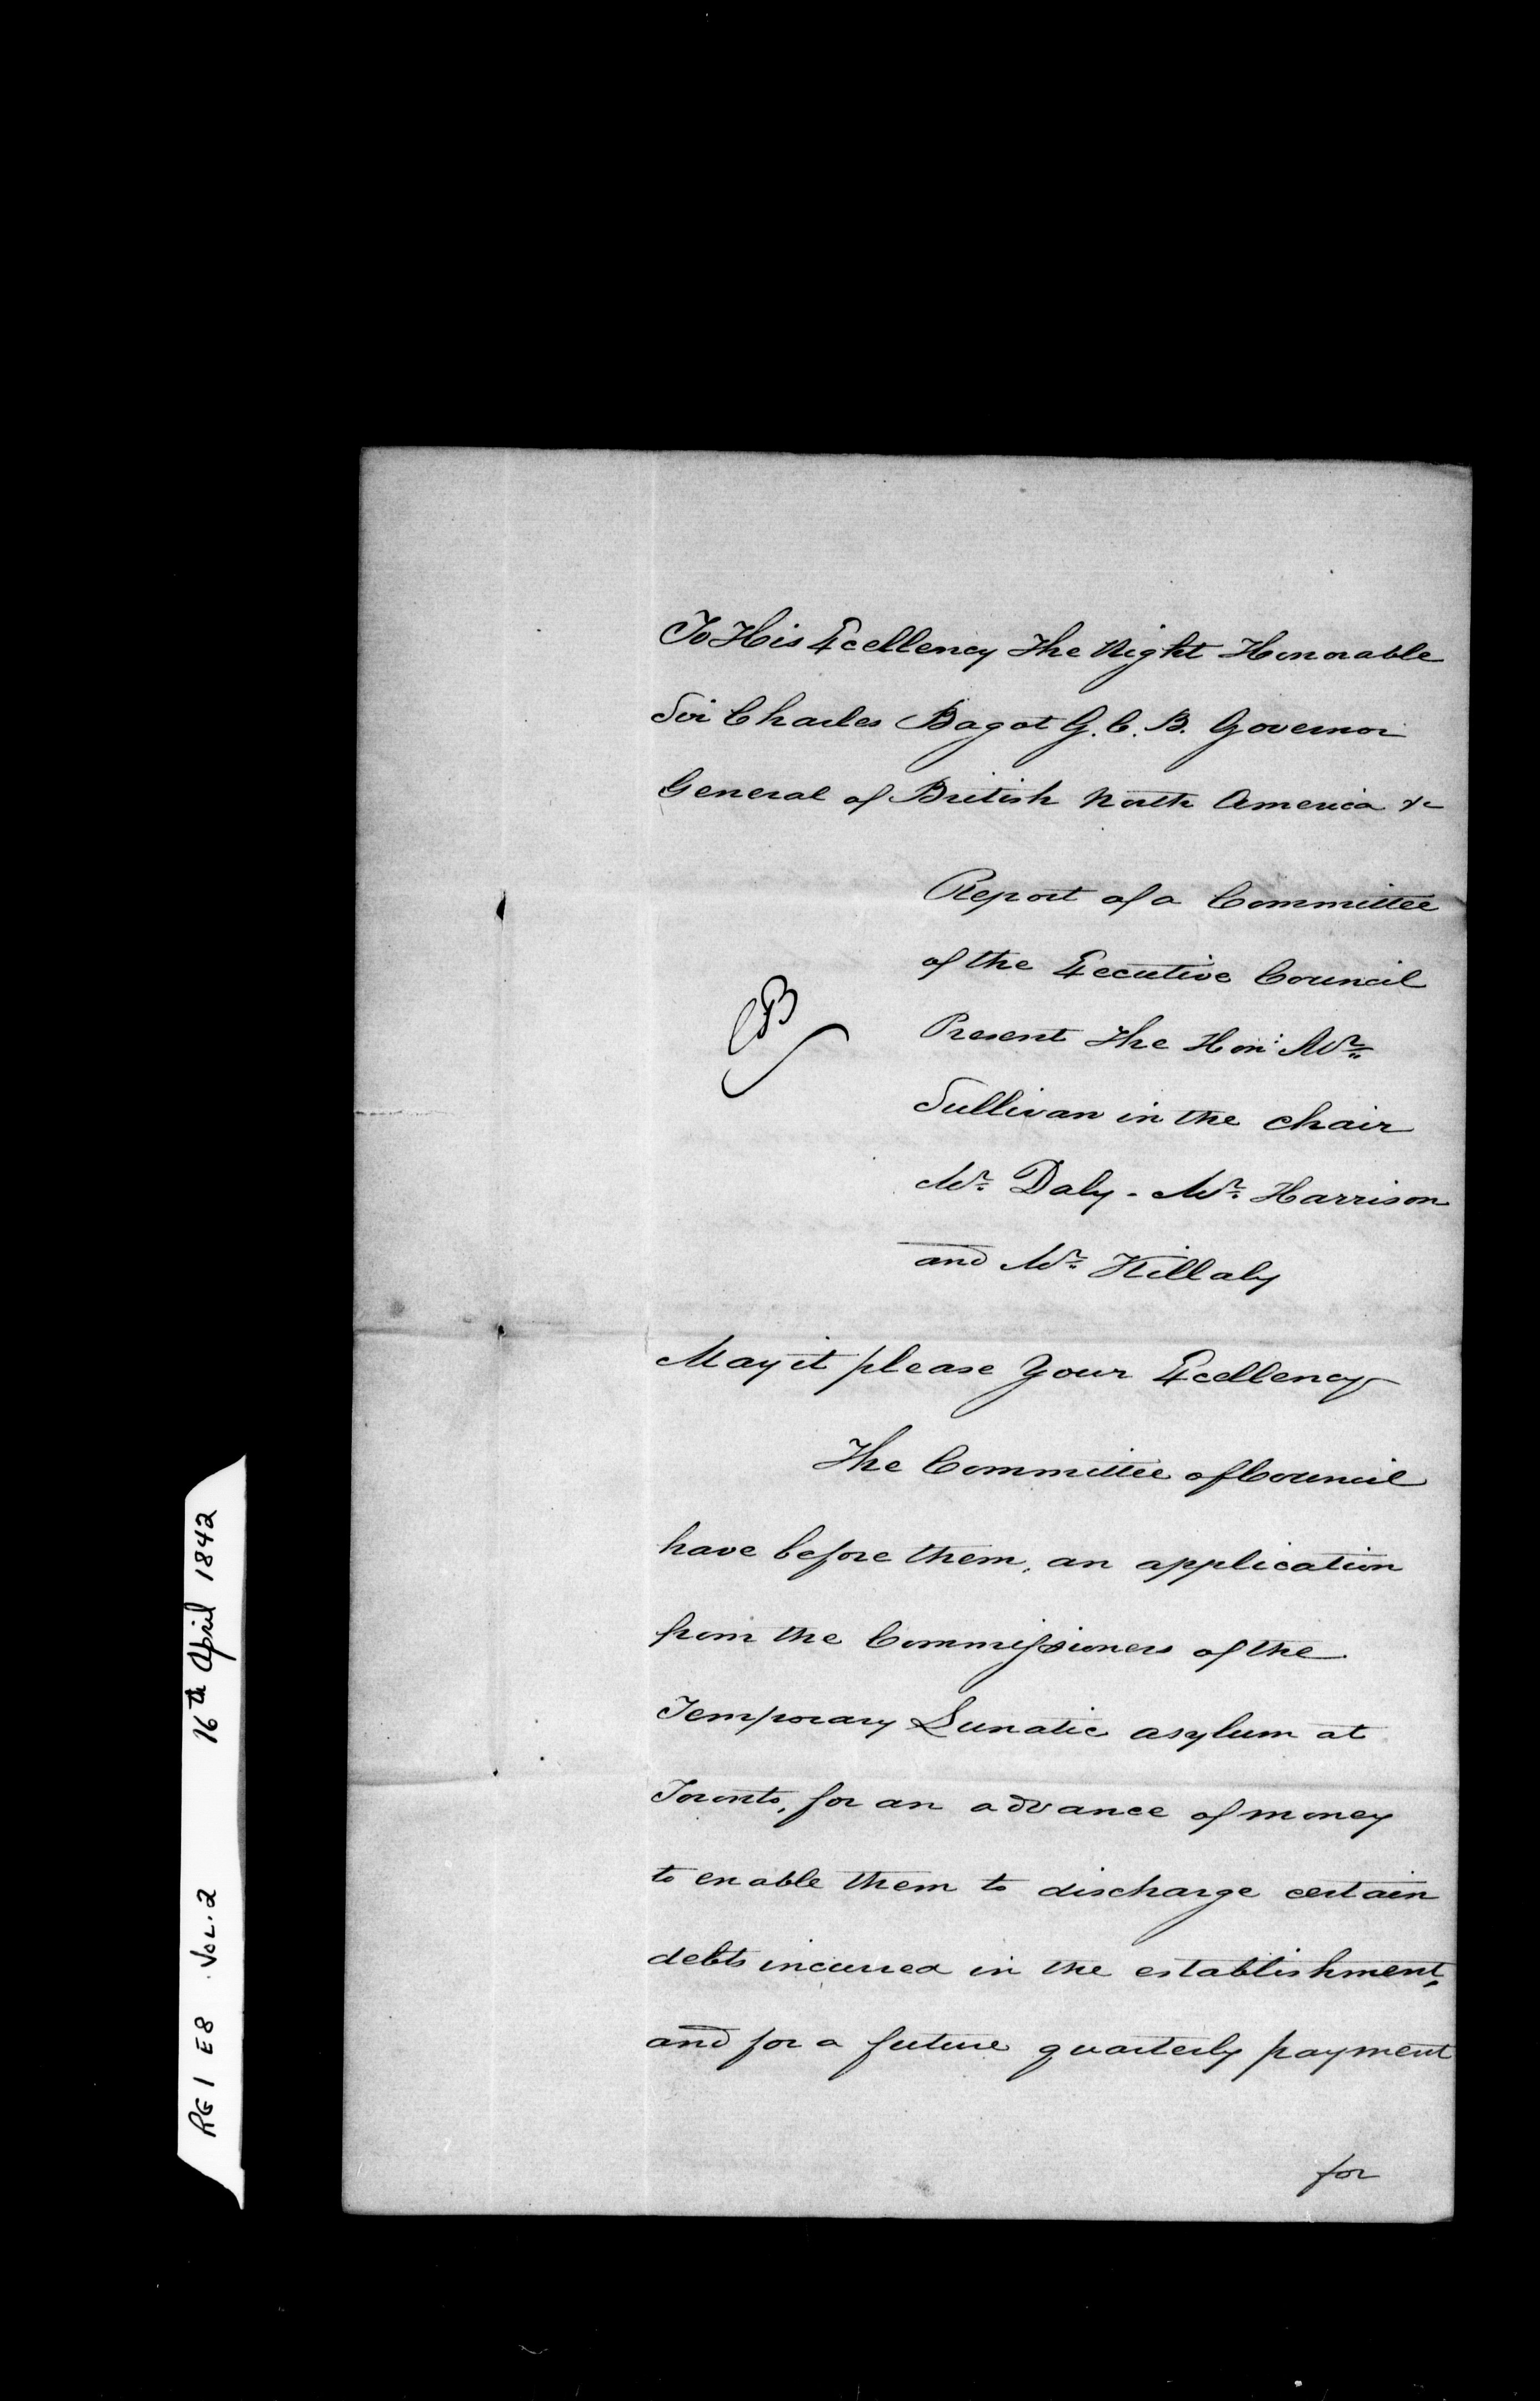 To His Excellency The Right Honorable
Sir Charles Bagot G. C. B. Governor
General of British North America &c
Report of a Committee
of the Executive Council
Present The Hon: Mr.
Sullivan in the chair
Mr. Daly - Mr. Harrison
and Mr. Killaly
CB
May it please Your Excellency
The Committee of Council
have before them, an application
from the Commissioners of the
Temporary Lunatic asylum at
Toronto, for an advance of money
to enable them to discharge certain
debts incurred in the establishment,
and for a future quarterly payment
for
RG1 E8 VOL.2 16th April 1842